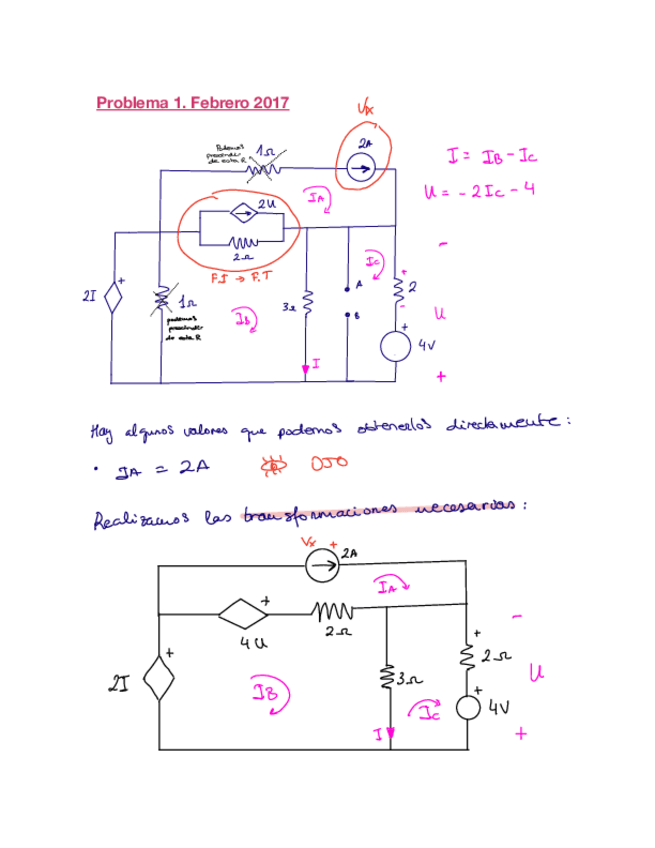 Problema 1. Febrero 2017
Vx
Podemos
prescindir
de esta R
1Ω
2A
I = IB - Ic
U = - 2Ic - 4
IA
2U
2Ω
F.I → F.T
Ic
-
+
2I
+
1Ω
podemos
prescindir
de esta R
IB
3Ω
A
B
+
2
-
U
+
4V
I
+
Hay algunos valores que podemos obtenerlos directamente:
• IA = 2A OJO
Realizamos las transformaciones necesarias:
Vx +
2A
IA
+
4U
2Ω
-
+
2Ω
U
2I
+
IB
3Ω
Ic
+
4V
I
+